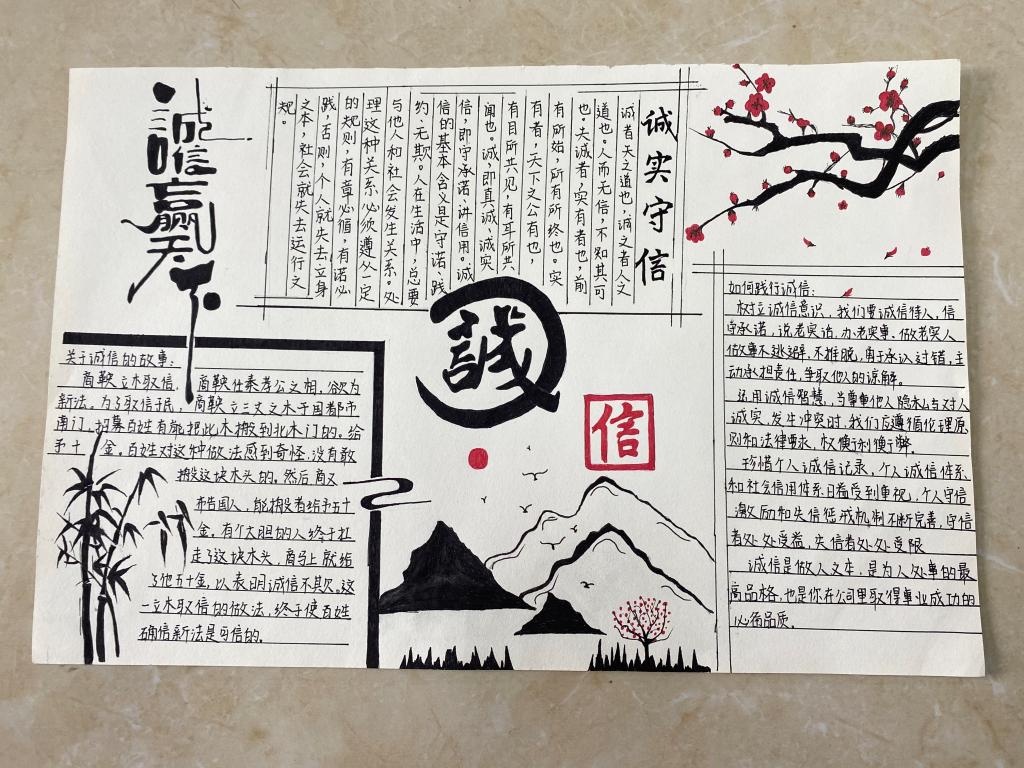 誠信赢天下
诚实守信
诚者天之道也，诚之者人之
道也。人而无信，不知其可
也。夫诚者，实有者也，前
有所始，所有所终也。实
有者，天下之公有也，
有目所共见，有耳所共
闻也。诚，即真诚、诚实
信，即守承诺、讲信用。诚
信的基本含义是守诺、践
约、无欺。人在生活中，总要
与他人和社会发生关系。处
理这种关系必须遵从一定
的规则，有章必循，有诺必
践，否则，个人就失去立身
之本，社会就失去运行之
规。
誠
信
关于诚信的故事：
商鞅立木取信， 商鞅任秦孝公之相，欲为
新法。为了取信于民，商鞅立三丈之木于国都市
南门，招募百姓有能把此木搬到北木门的。给
予十 金。百姓对这种做法感到奇怪，没有敢
搬这块木头的。然后，商又
布告国人，能搬者给予五十
金。有个大胆的人终于扛
走了这块木头，商马上就给
了他五十金，以表明诚信不其欠。这
一立木取信的做法，终于使百姓
确信新法是可信的。
如何践行诚信：
树立诚信意识，我们要诚信待人，信
守承诺，说老实话，办老实事、做老实人
做事不逃避，不推脱，勇于承认过错，主
动承担责任，争取他人的谅解。
运用诚信智慧，当尊重他人隐私与对人
诚实，发生冲突时，我们应遵循伦理原
则和法律要求，权衡利弊。
珍惜个人诚信记录，个人诚信体系
和社会信用体系日益受到重视，个人守信
激励和失信惩戒机制不断完善，守信
者处处受益，失信者处处受限
诚信是做人之本，是为人处事的最
高品格，也是你在公司里取得事业成功的
必备品质。